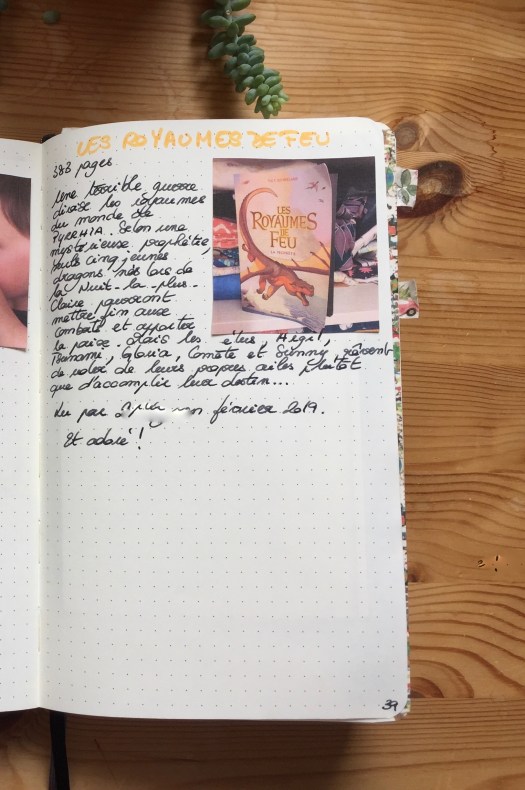 LES ROYAUMES DE FEU
383 pages
Une terrible guerre
divise les royaumes
du monde de
PYRRHIA. Selon une
mystérieuse prophétie,
seuls cinq jeunes
dragons nés lors de
la Nuit-la-plus-
Claire pourront
mettre fin aux
combats et apporter
la paix. Mais les élus, Argil,
Tsunami, Gloria, Comète et Sunny, rêvent
de voler de leurs propres ailes plutôt
que d'accomplir leur destin...
Lu par en février 2019.
Et adoré !
LES
ROYAUMES
DE
FEU
LA PROPHÉTIE
39